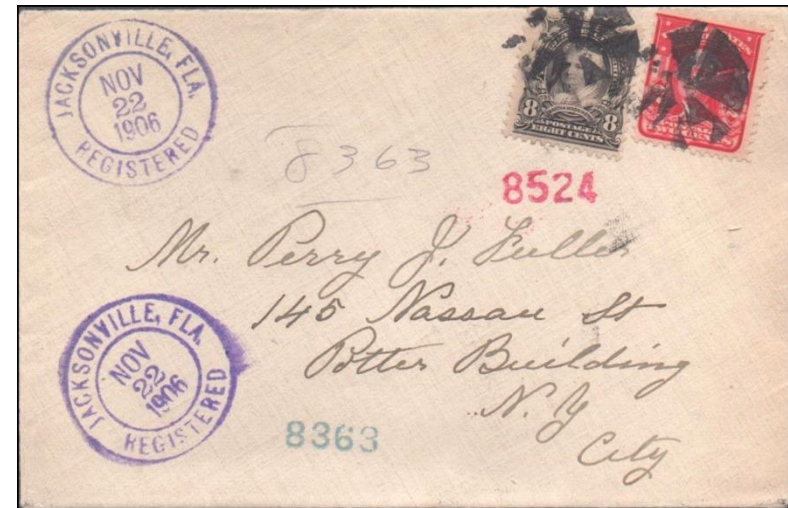 JACKSONVILLE, FLA.
NOV
22
1906
REGISTERED
8 8
POSTAGE
EIGHT CENTS
8363
8524
Mr. Perry J. Fuller
145 Nassau St
Potter Building
N. Y
City
JACKSONVILLE, FLA.
NOV
22
1906
REGISTERED
8363